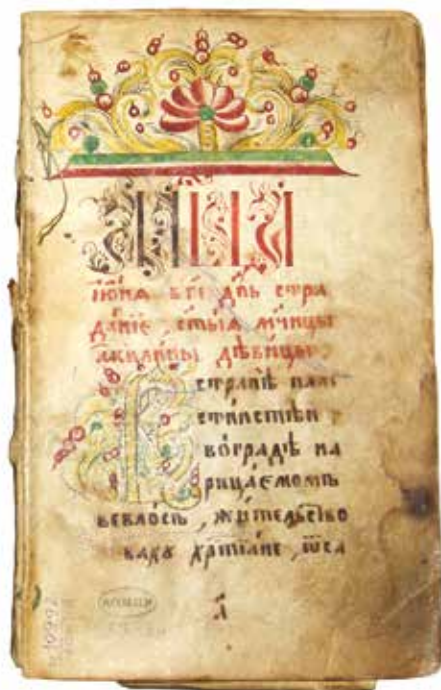 іюнѧ вгі дн҃ь стра
данїе ст҃ыѧ мч҃ницы
акилины дѣвицы
встранѣ пале
стинстѣи
воградѣ на
рицаемомъ
вевлосъ, жительство
ваху хр҃тїане, ѿса